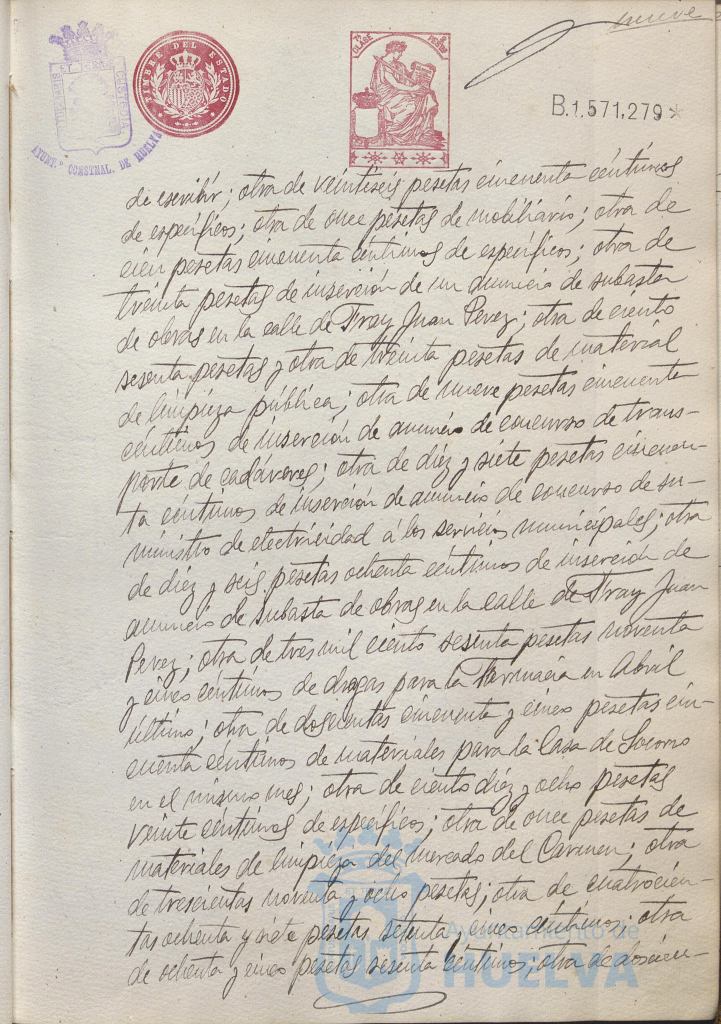 nueve
TIMBRE DEL ESTADO
CLASE
B.1.571,279*
AYUNT.º CONSTNAL. DE HUELVA
de escribir; otra de veintiseis pesetas cincuenta céntimos
de específicos; otra de once pesetas de mobiliario; otra de
cien pesetas cincuenta céntimos de específicos; otra de
treinta pesetas de inserción de un anuncio de subasta
de obras en la calle de Fray Juan Perez; otra de ciento
sesenta pesetas y otra de treinta pesetas de material
de limpieza pública; otra de nueve pesetas cincuenta
céntimos de inserción de anuncio de concurso de trans-
porte de cadáveres; otra de diez y siete pesetas cincuen-
ta céntimos de inserción de anuncio de concurso de su-
ministro de electricidad á los servicios municipales; otra
de diez y seis pesetas ochenta céntimos de inserción de
anuncio de subasta de obras en la calle de Fray Juan
Perez; otra de tres mil ciento sesenta pesetas noventa
y cinco céntimos de drogas para la Farmacia en Abril
último; otra de doscientas cincuenta y cinco pesetas cin-
cuenta céntimos de materiales para la Casa de Socorro
en el mismo mes; otra de ciento diez y ocho pesetas
veinte céntimos de específicos; otra de once pesetas de
materiales de limpieza del mercado del Carmen; otra
de trescientas noventa y ocho pesetas; otra de cuatrocien-
tas ochenta y siete pesetas setenta y cinco céntimos; otra
de ochenta y cinco pesetas sesenta céntimos; otra de doscien-
Ayuntamiento de
HUELVA